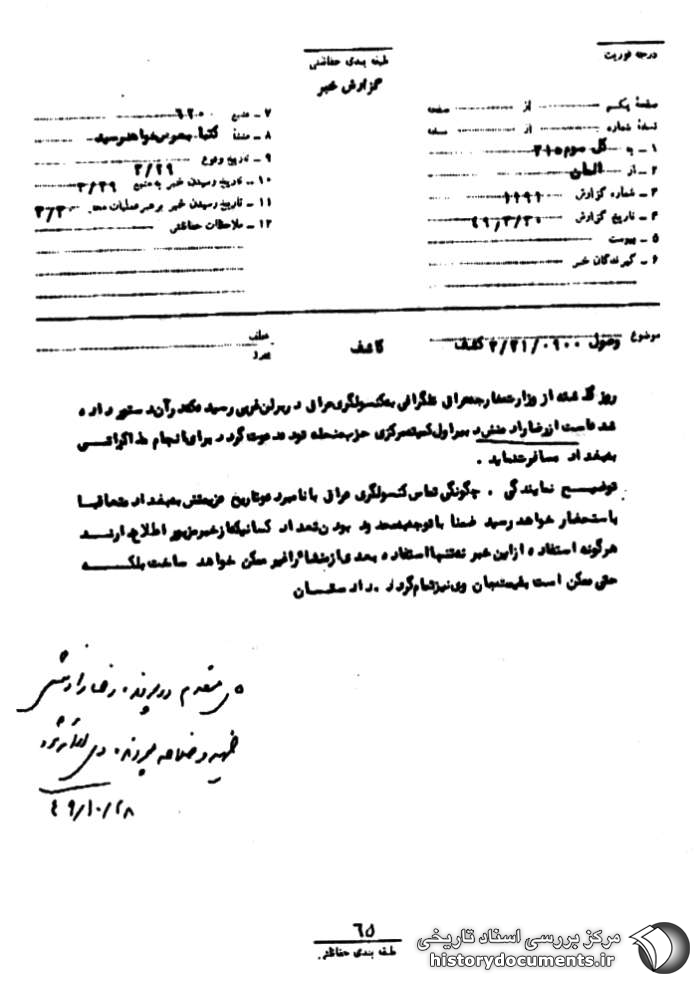 درجه فوریت
طبقه بندی حفاظتی
گزارش خبر
صفحه یکم از صفحه
نسخهٔ شماره از نسخه
۱ - به کل سوم ۳۱۵
۲ - از المان
۳ - شماره گزارش ۱۱۹۹
۴ - تاریخ گزارش ۴۹/۳/۳۰
۵ - پیوست
۶ - گیرندگان خبر
۷ - منبع ۶۲۰۰
۸ - منشا کتبا بعرض خواهد رسید
۹ - تاریخ وقوع ۳/۲۹
۱۰ - تاریخ رسیدن خبر به منبع ۳/۲۹
۱۱ - تاریخ رسیدن خبر برهبر عملیات محل ۳/۳۰
۱۲ - ملاحظات حفاظتی
موضوع وصول ۳/۳۱/۰۹۰۰ کشف کاشف
عطف
پیرو
روز گذشته از وزارتخارجه عراق تلگرافی به کنسولگری عراق در برلن غربی رسید که در آن دستور داده
شده است از رضا رادمنش دبیر اول کمیته مرکزی حزب منحله توده دعوت گردد برای انجام مذاکراتی
به بغداد مسافرت نماید .
توضیح نمایندگی . چگونگی تماس کنسولگری عراق با نامبرده و تاریخ عزیمتش به بغداد متعاقبا
باستحضار خواهد رسید ضمنا با توجه بمحدود بودن تعداد کسانیکه از خبر مزبور اطلاع دارند
هرگونه استفاده از این خبر نه تنها استفاده بعدی از منشا را غیر ممکن خواهد ساخت بلکه
حتی ممکن است بقیمت جان وی نیز تمام گردد . دادستان
در پرونده رضا رادمنش
پرونده
۴۹/۱۰/۲۸
۶۵
طبقه بندی حفاظتی
مرکز بررسی اسناد تاریخی
historydocuments.ir